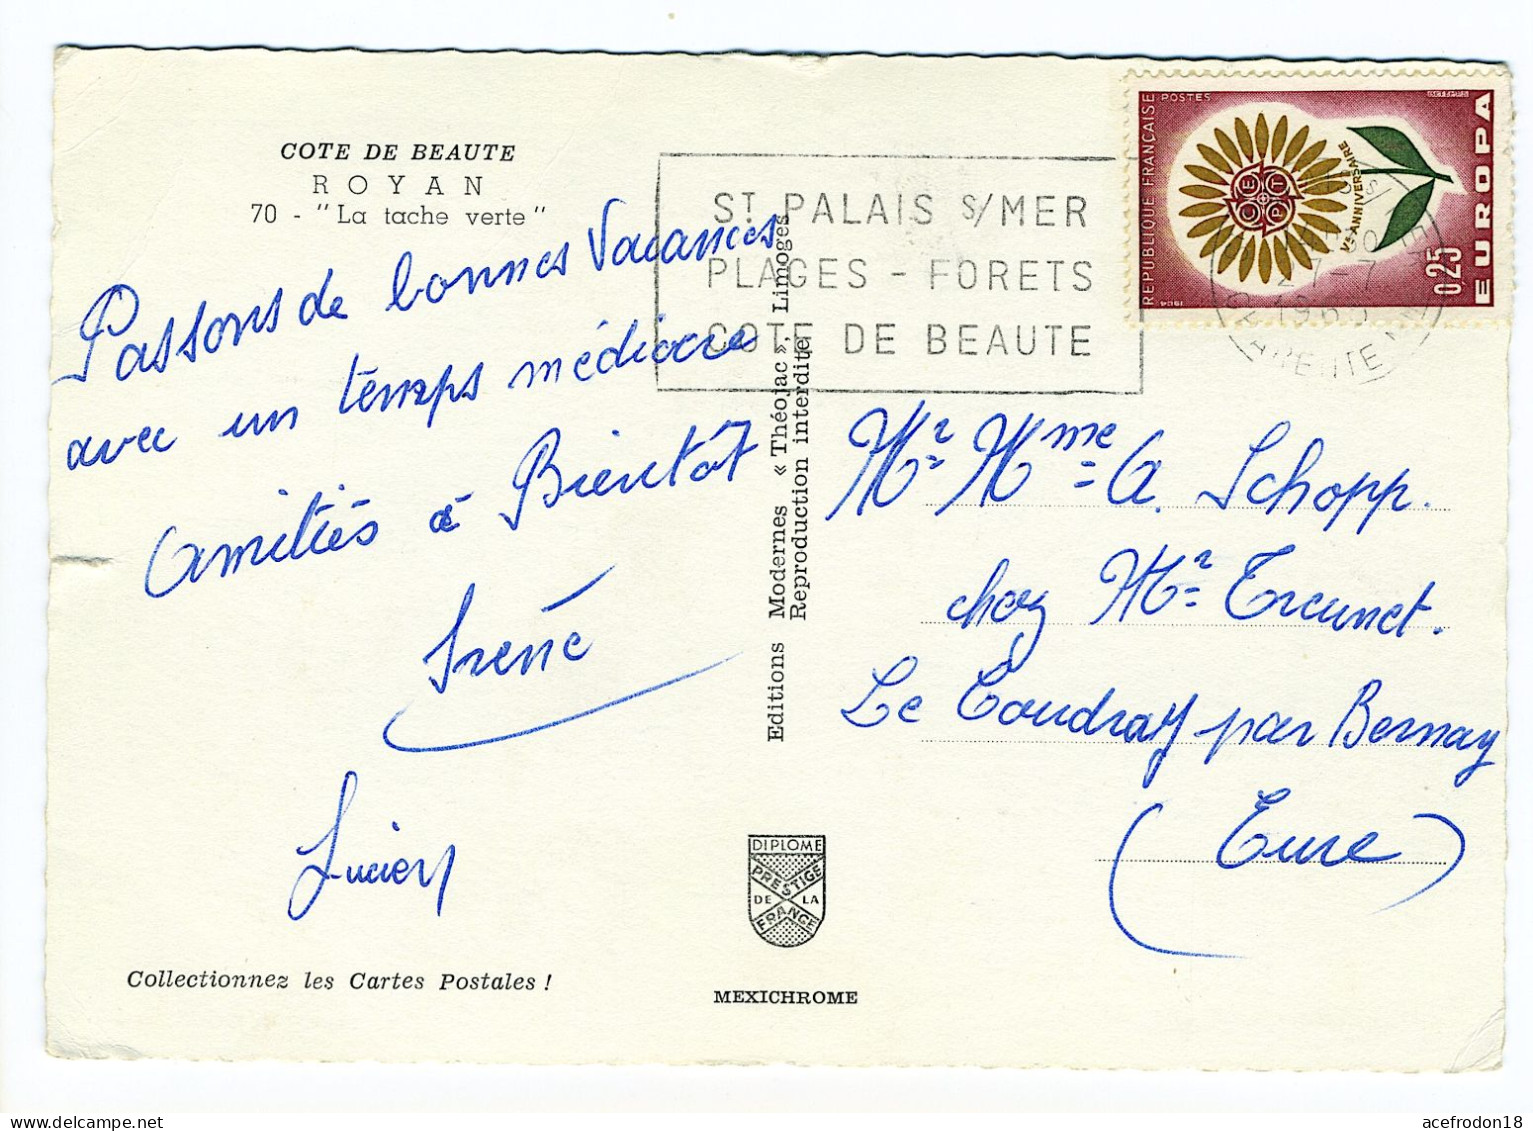 COTE DE BEAUTE
ROYAN
70 - "La tache verte"
Passons de bonnes Vacances
avec un temps médiocre
Amitiés à Bientôt
Irène
Lucien
Collectionnez les Cartes Postales !
Editions Modernes « Théojac ». Limoges
Reproduction interdite
DIPLOME
PRESTIGE
DE LA
FRANCE
MEXICHROME
ST PALAIS S/MER
PLAGES - FORETS
COTE DE BEAUTE
REPUBLIQUE FRANÇAISE
POSTES
Ve ANNIVERSAIRE
CEPT
0,25
EUROPA
1964
27-7
CHARENTE
Mr Mme A. Schopp.
chez Mr Treunet.
Le Coudray par Bernay
(Eure)
acefrodon18